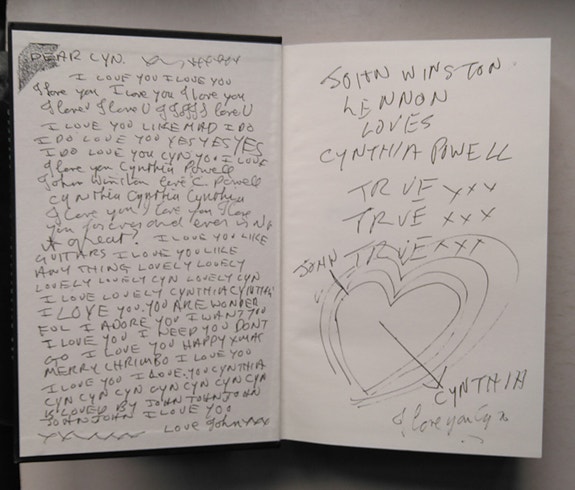 DEAR CYN.
I LOVE YOU I LOVE YOU
I love you I love you I love you
I love U I love U I love U
I LOVE YOU LIKE MAD I DO
I DO LOVE YOU YES YES YES
I DO LOVE YOU CYN YOU I LOVE
I love you Cynthia Powell
John Winston love C. Powell
CYNTHIA CYNTHIA CYNTHIA
I love you I love you I love
you forever and ever isn't
it great? I LOVE YOU LIKE
GUITARS I LOVE YOU LIKE
ANYTHING LOVELY LOVELY
LOVELY LOVELY CYN LOVELY CYN
I LOVE LOVELY CYNTHIA CYNTHIA
I LOVE YOU. YOU ARE WONDER
FUL I ADORE YOU I WANT YOU
I LOVE YOU I NEED YOU DONT
GO I LOVE YOU HAPPY XMAS
MERRY CHRIMBO I LOVE YOU
I LOVE YOU I LOVE. YOU CYNTHIA
CYN CYN CYN CYN CYN CYN CYN
IS LOVED BY JOHN JOHN JOHN
JOHN JOHN I LOVE YOU
LOVE John xxx
JOHN WINSTON
LENNON
LOVES
CYNTHIA POWELL
TRUE xxx
TRUE xxx
TRUE xxx
JOHN
CYNTHIA
I love you Cyn